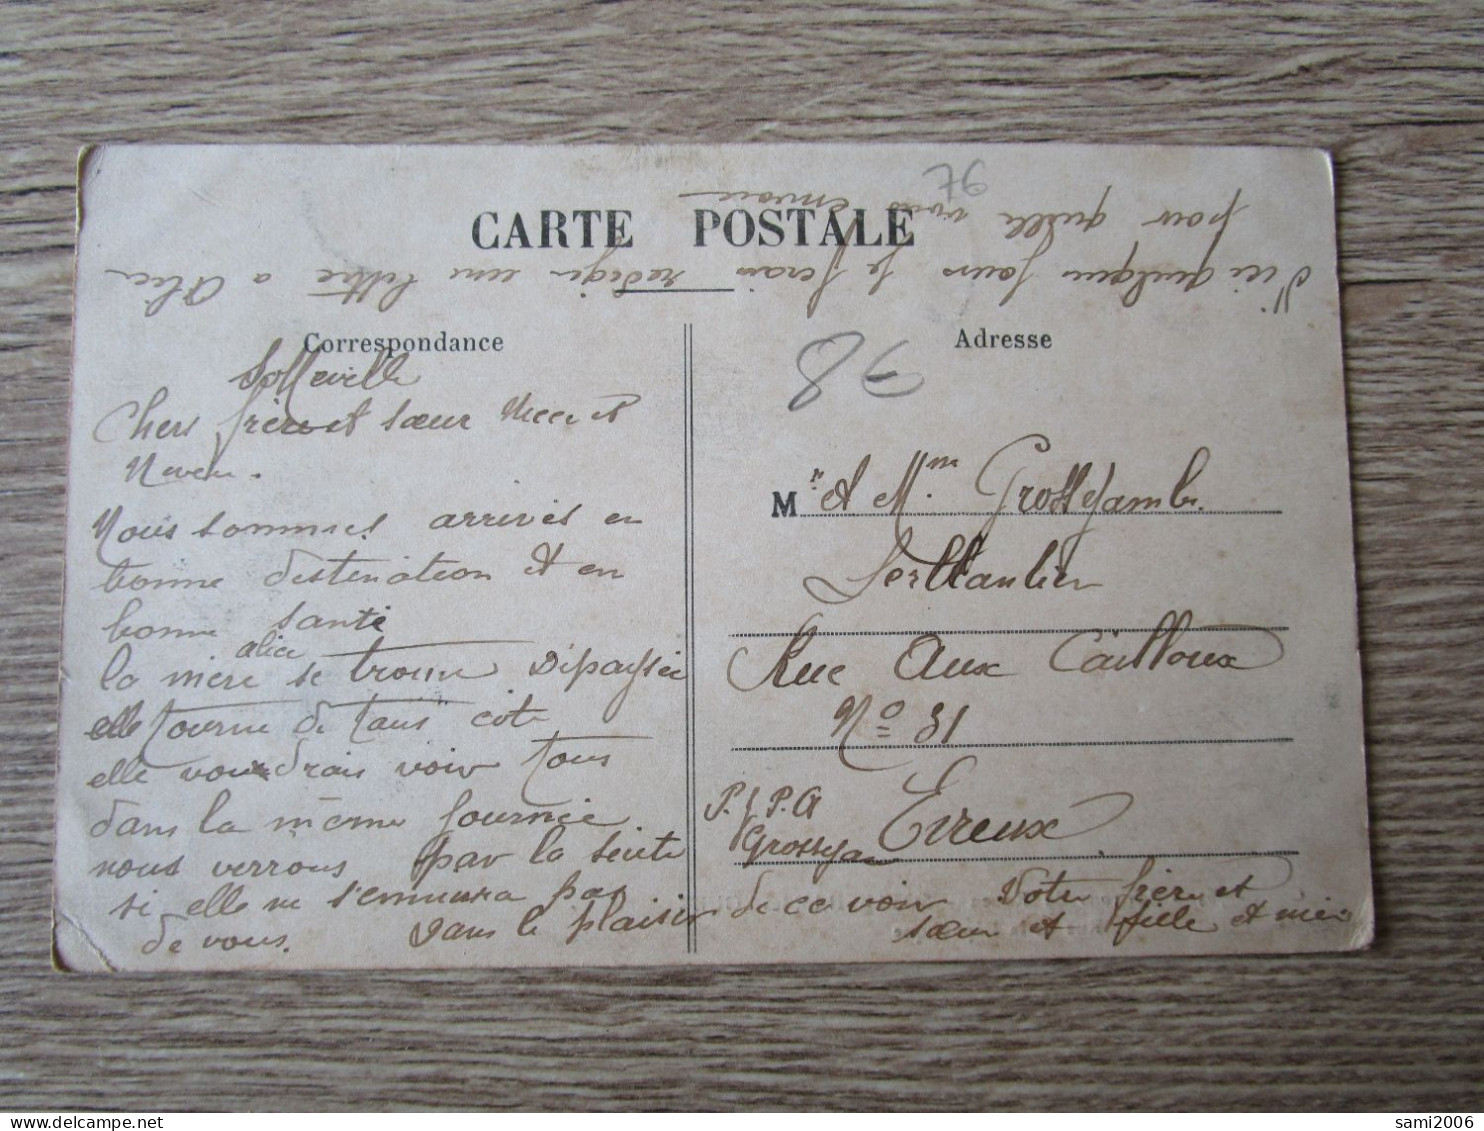 76
CARTE POSTALE
D'ici quelques jours je ferais rediger une lettre a alice
pour quelle vous envoie
Correspondance
Sotteville
Chers frère et sœur Niece et
Neveu.
Nous sommes arrivés en
bonne destination et en
bonne santé
la mère alice se trouve Dépaysée
elle tourne de tous côté
elle voudrais voir tous
dans la même journée
nous verrons par la suite
si elle ne s'ennuura pas
de vous. Dans le plaisir de ce voir Votre frère et
sœur et fille et mère
Adresse
78
Mr et Mme Grossejambe
Ferblantier
Rue Aux Cailloux
No 31
P. f P. A
Grosseja
Evreux
sami2006